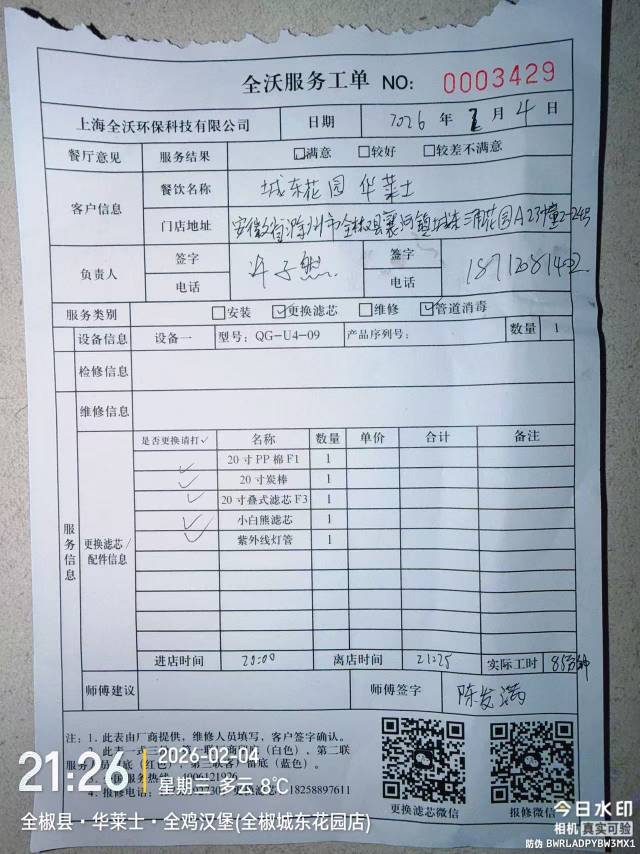 全沃服务工单 NO: 0003429
上海全沃环保科技有限公司 日期 2026 年 2 月 4 日
餐厅意见 服务结果 ☑满意 □较好 □较差不满意
客户信息 餐饮名称 城东花园 华莱士
门店地址 安徽省滁州市全椒县襄河镇城东 花园A23幢
负责人 签字 签字
电话 电话
服务类别 □安装 ☑更换滤芯 □维修 ☑管道消毒
设备信息 设备一 型号: QG-U4-09 产品序列号: 数量 1
检修信息
维修信息
服务信息
更换滤芯/配件信息
是否更换请打✓ 名称 数量 单价 合计 备注
✓ 20寸PP棉F1 1
✓ 20寸炭棒 1
✓ 20寸叠式滤芯F3 1
✓ 小白熊滤芯 1
✓ 紫外线灯管 1
进店时间 20:00 离店时间 21:25 实际工时 85分钟
师傅建议 师傅签字 陈发满
注: 1. 此表由厂商提供, 维修人员填写, 客户签字确认。
(白色), 第二联
(红色), 底(蓝色)。
4. 报修电话: 18258897611
更换滤芯微信 报修微信
21:26
2026-02-04
星期三 多云 8℃
全椒县·华莱士·全鸡汉堡(全椒城东花园店)
今日水印
相机 真实可验
防伪 BWRLADPYBW3MX1